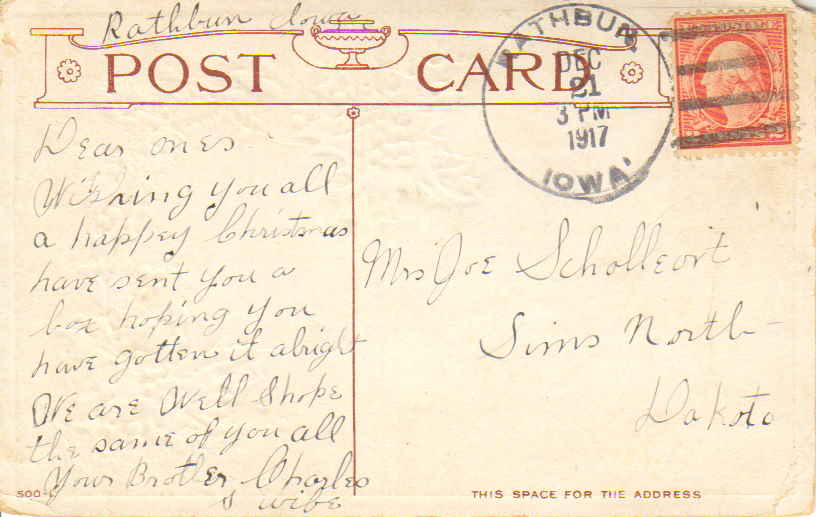 Rathbun Iowa
POST CARD
RATHBUN,
DEC
21
3 PM
1917
IOWA
Dear ones
Wishing you all
a happey Christmas
have sent you a
box hoping you
have gotten it alright
We are Well & hope
the same of you all
Your Brother Charles
& wife
Mrs Joe
Sims North
Dakota
500
THIS SPACE FOR THE ADDRESS